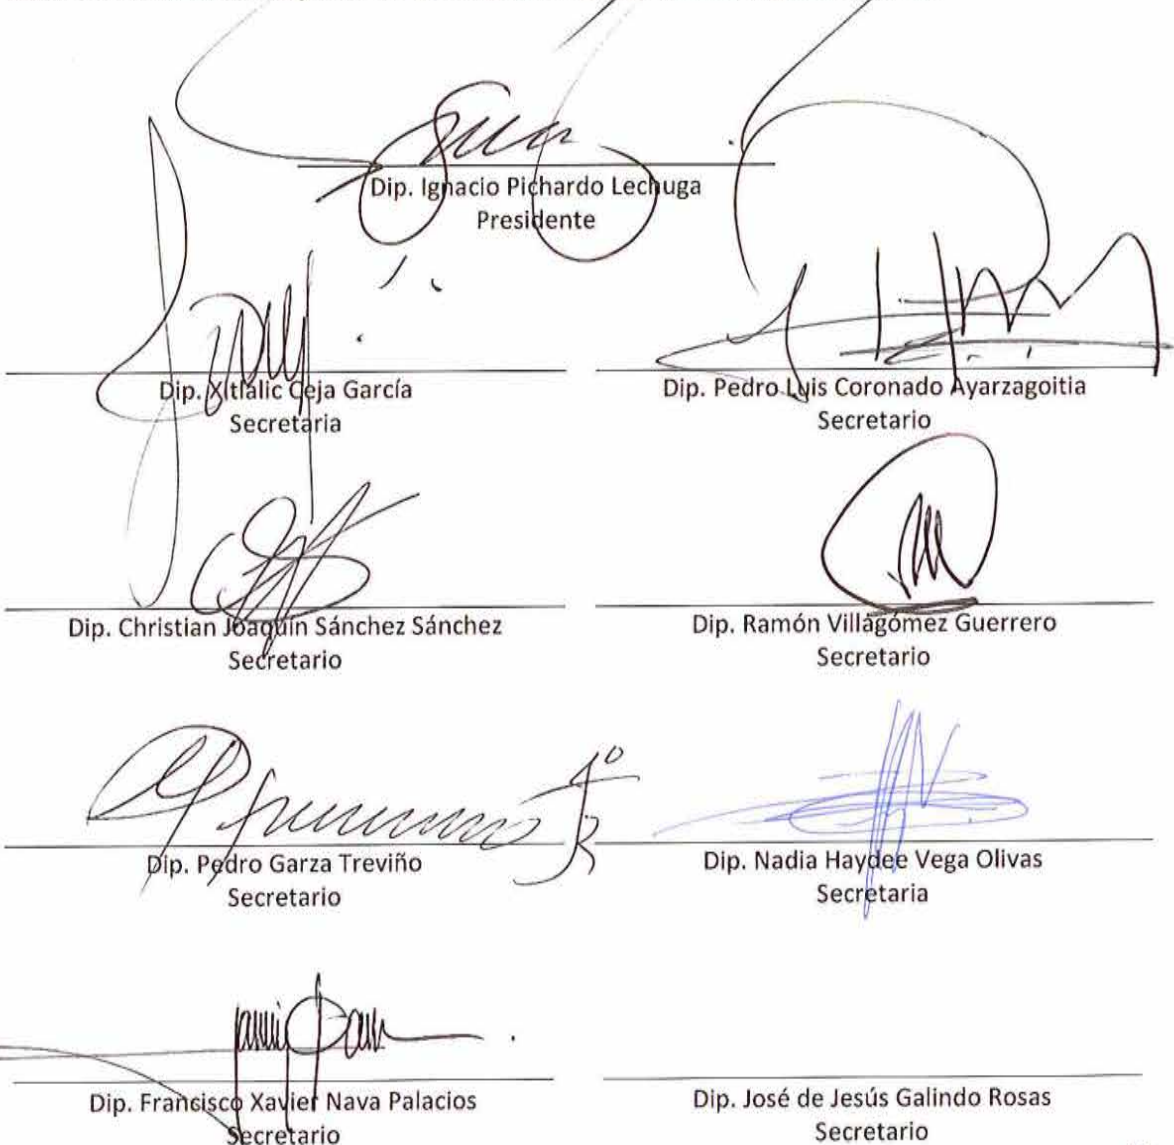 Dip. Ignacio Pichardo Lechuga
Presidente
Dip. Xitlalic Ceja García
Secretaria
Dip. Pedro Luis Coronado Ayarzagoitia
Secretario
Dip. Christian Joaquín Sánchez Sánchez
Secretario
Dip. Ramón Villagómez Guerrero
Secretario
Dip. Pedro Garza Treviño
Secretario
Dip. Nadia Haydee Vega Olivas
Secretaria
Dip. Francisco Xavier Nava Palacios
Secretario
Dip. José de Jesús Galindo Rosas
Secretario